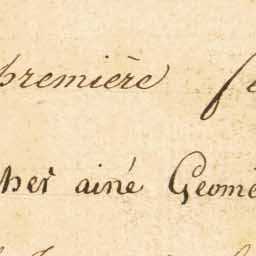 première
her ainé Geomé